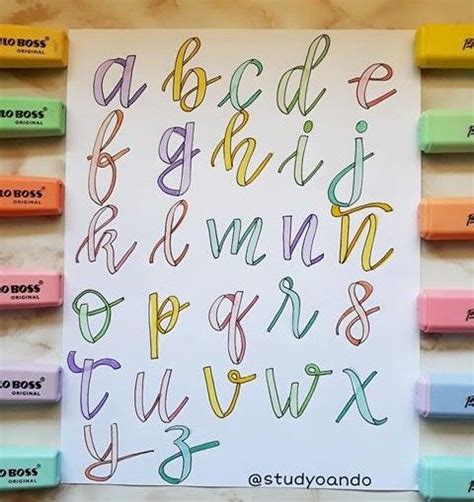 LO BOSS
ORIGINAL
a b c d e
LO BOSS
ORIGINAL
f g h i j
LO BOSS
ORIGINAL
k l m n ñ
LO BOSS
ORIGINAL
o p q r s
LO BOSS
ORIGINAL
t u v w x
O BOSS
ORIGINAL
y z
@studyoando